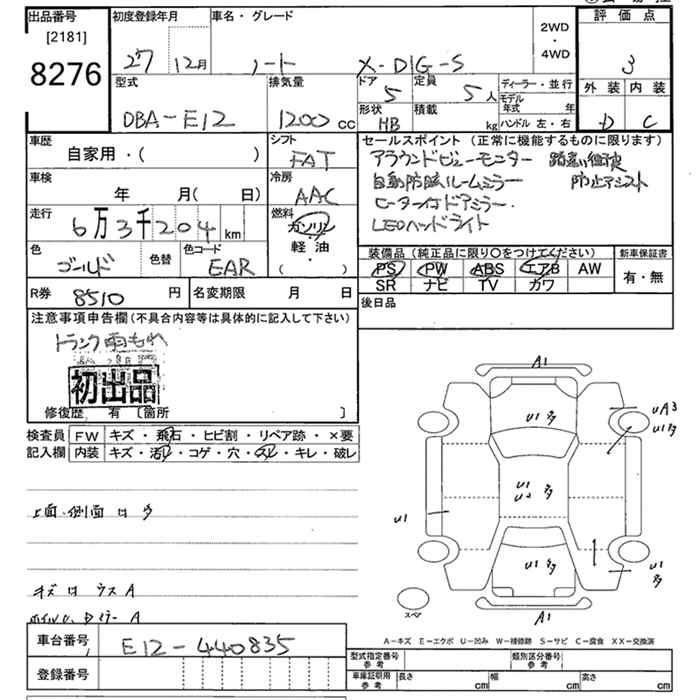 出品番号
[2181]
8276
初度登録年月
車名・グレード
27 12月
ノート X-DIG-S
2WD
・
4WD
評価点
3
外装 内装
D C
型式
DBA-E12
排気量
1200 cc
ドア
5
定員
5人
形状
HB
積載
kg
ディーラー・並行
モデル年式 年
ハンドル 左・右
車歴
自家用・( )
シフト
FAT
車検
年 月( 日)
冷房
AAC
走行
6万3千204km
燃料
ガソリン
軽・油
( )
色
ゴールド
色替
色コード
EAR
R券 8510円
名変期限 月 日
セールスポイント (正常に機能するものに限ります)
アラウンドビューモニター 踏み間違い衝突
自動防眩ルームミラー 防止アシスト
ヒーター付ドアミラー
LEDヘッドライト
装備品(純正品に限り○をつけてください)
PS PW ABS エアB AW
SR ナビ TV カワ
新車保証書
有・無
後日品
注意事項申告欄(不具合内容等は具体的に記入して下さい)
トランク雨もれ
初出品
修復歴 有 〔箇所 〕
検査員
記入欄
FW キズ・飛石・ヒビ割・リペア跡・×要
内装 キズ・汚れ・コゲ・穴・スレ・キレ・破レ
上面、側面 U 多
キズ U ウス A
車台番号 E12-440835
登録番号
A1
U1 多
UA3
U1 多
U1
U1 多
U1
U1 多
U1 多
A1
スペア
A−キズ E−エクボ U−凹み W−補修跡 S−サビ C−腐食 XX−交換済
型式指定番号
参考
類別区分番号
参考
車庫証明用
参考
長さ cm
幅 cm
高さ cm